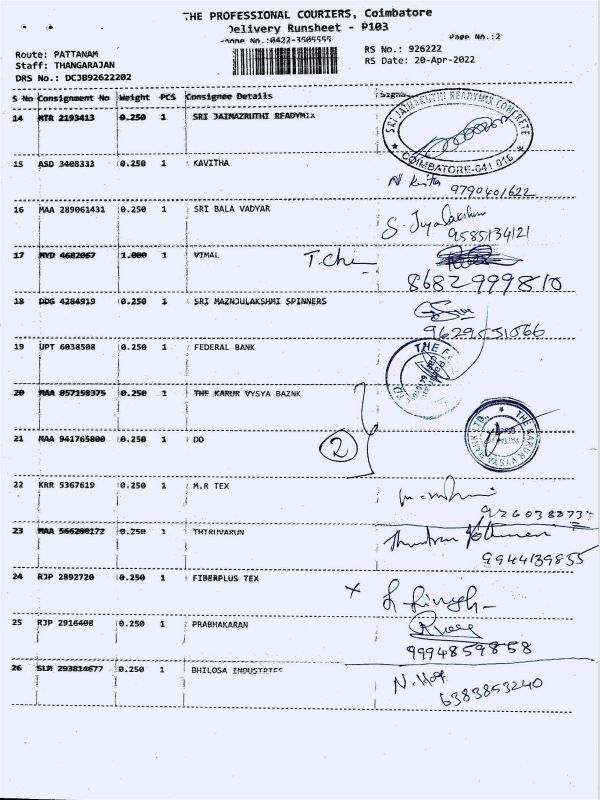 THE PROFESSIONAL COURIERS, Coimbatore
Delivery Runsheet - P103
Phone No.:0422-3505555
Page No.:2
Route: PATTANAM
RS No.: 926222
Staff: THANGARAJAN
RS Date: 20-Apr-2022
DRS No.: DCJB92622202
S No Consignment No Weight PCS Consignee Details
14 MTR 2193413 0.250 1 SRI JAIMAZRUTHI READYMIX
SRI JAIMARUTHI READYMIX CONCRETE
COIMBATORE-641 016
15 ASD 3408333 0.250 1 KAVITHA
9790401622
16 MAA 289061431 0.250 1 SRI BALA VADYAR
9585134121
17 MYD 4682067 1.000 1 VIMAL
8682999810
18 DDG 4284919 0.250 1 SRI MAZNJULAKSHMI SPINNERS
9629551066
19 UPT 6038508 0.250 1 FEDERAL BANK
20 MAA 857158375 0.250 1 THE KARUR VYSYA BAZNK
2
THE KARUR VYSYA BANK LTD.
21 MAA 941765800 0.250 1 DO
22 KRR 5367619 0.250 1 M.R TEX
23 MAA 566200172 0.250 1 THTRUVARUN
9944139855
24 RJP 2892720 0.250 1 FIBERPLUS TEX
25 RJP 2916408 0.250 1 PRABHAKARAN
9994859858
26 SLM 293814677 0.250 1 BHILOSA INDUSTRIES
6383853240